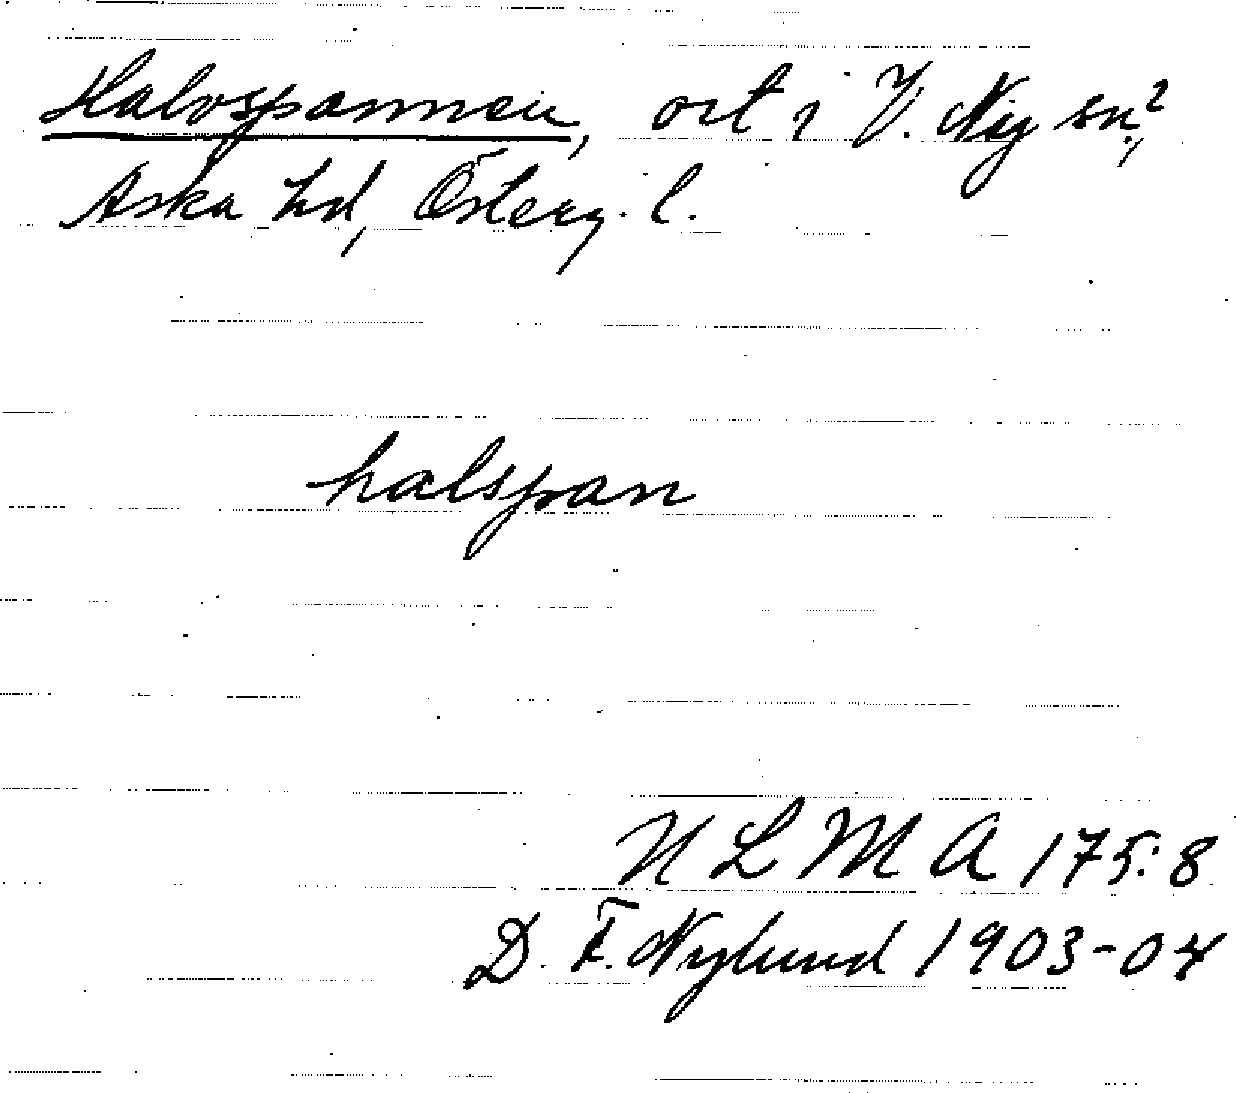 Halvspannen, ort i V. Ny sn?,
Aska hd, Österg. l.
halspan
ULMA 175:8
D. F. Nylund 1903-04